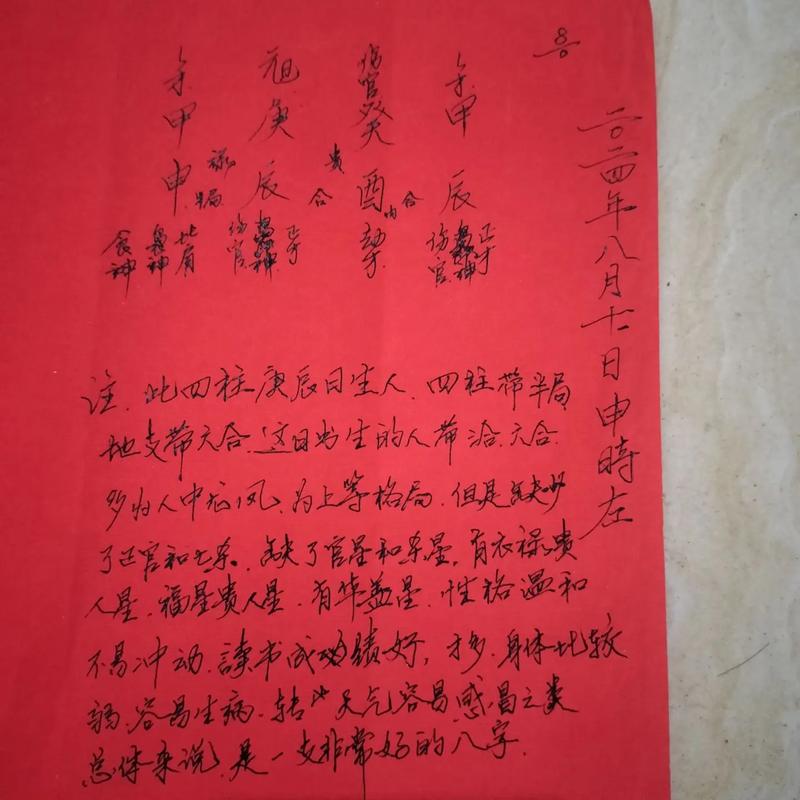 二〇二四年八月十一日申時左
甲辰
伤官癸酉
庚辰
甲申
禄
贵
半局
合
内合
食神
枭神
比肩
伤官
正才
劫才
伤官
正才
注.此四柱庚辰日生人.四柱带半局
地支带六合.这日出生的人带洽.六合.
多为人中龙凤.为上等格局.但是缺少
了正官和七杀。缺了官星和杀星.有衣禄贵
人星.福星贵人星.有华盖星.性格温和
不易冲动.讀书成绩好,才多.身体比较
弱.容易生病.转天气容易感昌之类
总体来说.是一支非常好的八字.